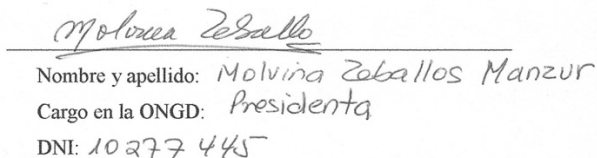 Molvina Zeballo
Nombre y apellido: Molvina Zeballos Manzur
Cargo en la ONGD: Presidenta
DNI: 10277445